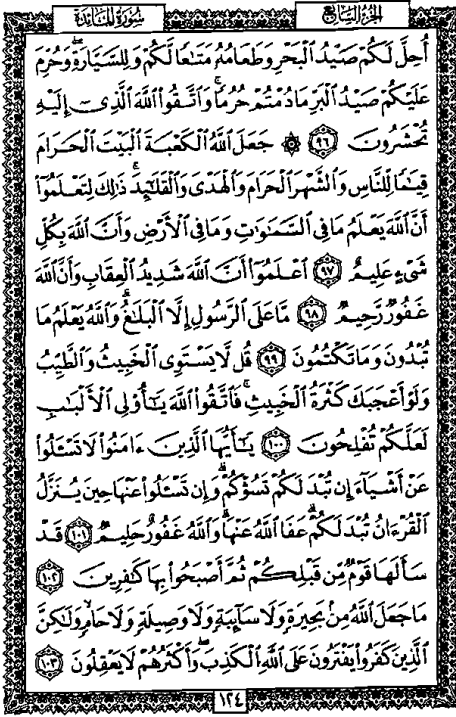 سورة المائدة
الجزء السابع
أُحِلَّ لَكُمْ صَيْدُ ٱلْبَحْرِ وَطَعَامُهُۥ مَتَٰعًا لَّكُمْ وَلِلسَّيَّارَةِۖ وَحُرِّمَ
عَلَيْكُمْ صَيْدُ ٱلْبَرِّ مَا دُمْتُمْ حُرُمًاۗ وَٱتَّقُوا۟ ٱللَّهَ ٱلَّذِىٓ إِلَيْهِ
تُحْشَرُونَ ٩٦ ۞ جَعَلَ ٱللَّهُ ٱلْكَعْبَةَ ٱلْبَيْتَ ٱلْحَرَامَ
قِيَٰمًا لِّلنَّاسِ وَٱلشَّهْرَ ٱلْحَرَامَ وَٱلْهَدْىَ وَٱلْقَلَٰٓئِدَۚ ذَٰلِكَ لِتَعْلَمُوٓا۟
أَنَّ ٱللَّهَ يَعْلَمُ مَا فِى ٱلسَّمَٰوَٰتِ وَمَا فِى ٱلْأَرْضِ وَأَنَّ ٱللَّهَ بِكُلِّ
شَىْءٍ عَلِيمٌ ٩٧ ٱعْلَمُوٓا۟ أَنَّ ٱللَّهَ شَدِيدُ ٱلْعِقَابِ وَأَنَّ ٱللَّهَ
غَفُورٌ رَّحِيمٌ ٩٨ مَّا عَلَى ٱلرَّسُولِ إِلَّا ٱلْبَلَٰغُۗ وَٱللَّهُ يَعْلَمُ مَا
تُبْدُونَ وَمَا تَكْتُمُونَ ٩٩ قُل لَّا يَسْتَوِى ٱلْخَبِيثُ وَٱلطَّيِّبُ
وَلَوْ أَعْجَبَكَ كَثْرَةُ ٱلْخَبِيثِۚ فَٱتَّقُوا۟ ٱللَّهَ يَٰٓأُو۟لِى ٱلْأَلْبَٰبِ
لَعَلَّكُمْ تُفْلِحُونَ ١٠٠ يَٰٓأَيُّهَا ٱلَّذِينَ ءَامَنُوا۟ لَا تَسْـَٔلُوا۟
عَنْ أَشْيَآءَ إِن تُبْدَ لَكُمْ تَسُؤْكُمْ وَإِن تَسْـَٔلُوا۟ عَنْهَا حِينَ يُنَزَّلُ
ٱلْقُرْءَانُ تُبْدَ لَكُمْ عَفَا ٱللَّهُ عَنْهَاۗ وَٱللَّهُ غَفُورٌ حَلِيمٌ ١٠١ قَدْ
سَأَلَهَا قَوْمٌ مِّن قَبْلِكُمْ ثُمَّ أَصْبَحُوا۟ بِهَا كَٰفِرِينَ ١٠٢
مَا جَعَلَ ٱللَّهُ مِنۢ بَحِيرَةٍ وَلَا سَآئِبَةٍ وَلَا وَصِيلَةٍ وَلَا حَامٍۙ وَلَٰكِنَّ
ٱلَّذِينَ كَفَرُوا۟ يَفْتَرُونَ عَلَى ٱللَّهِ ٱلْكَذِبَۖ وَأَكْثَرُهُمْ لَا يَعْقِلُونَ ١٠٣
١٢٤